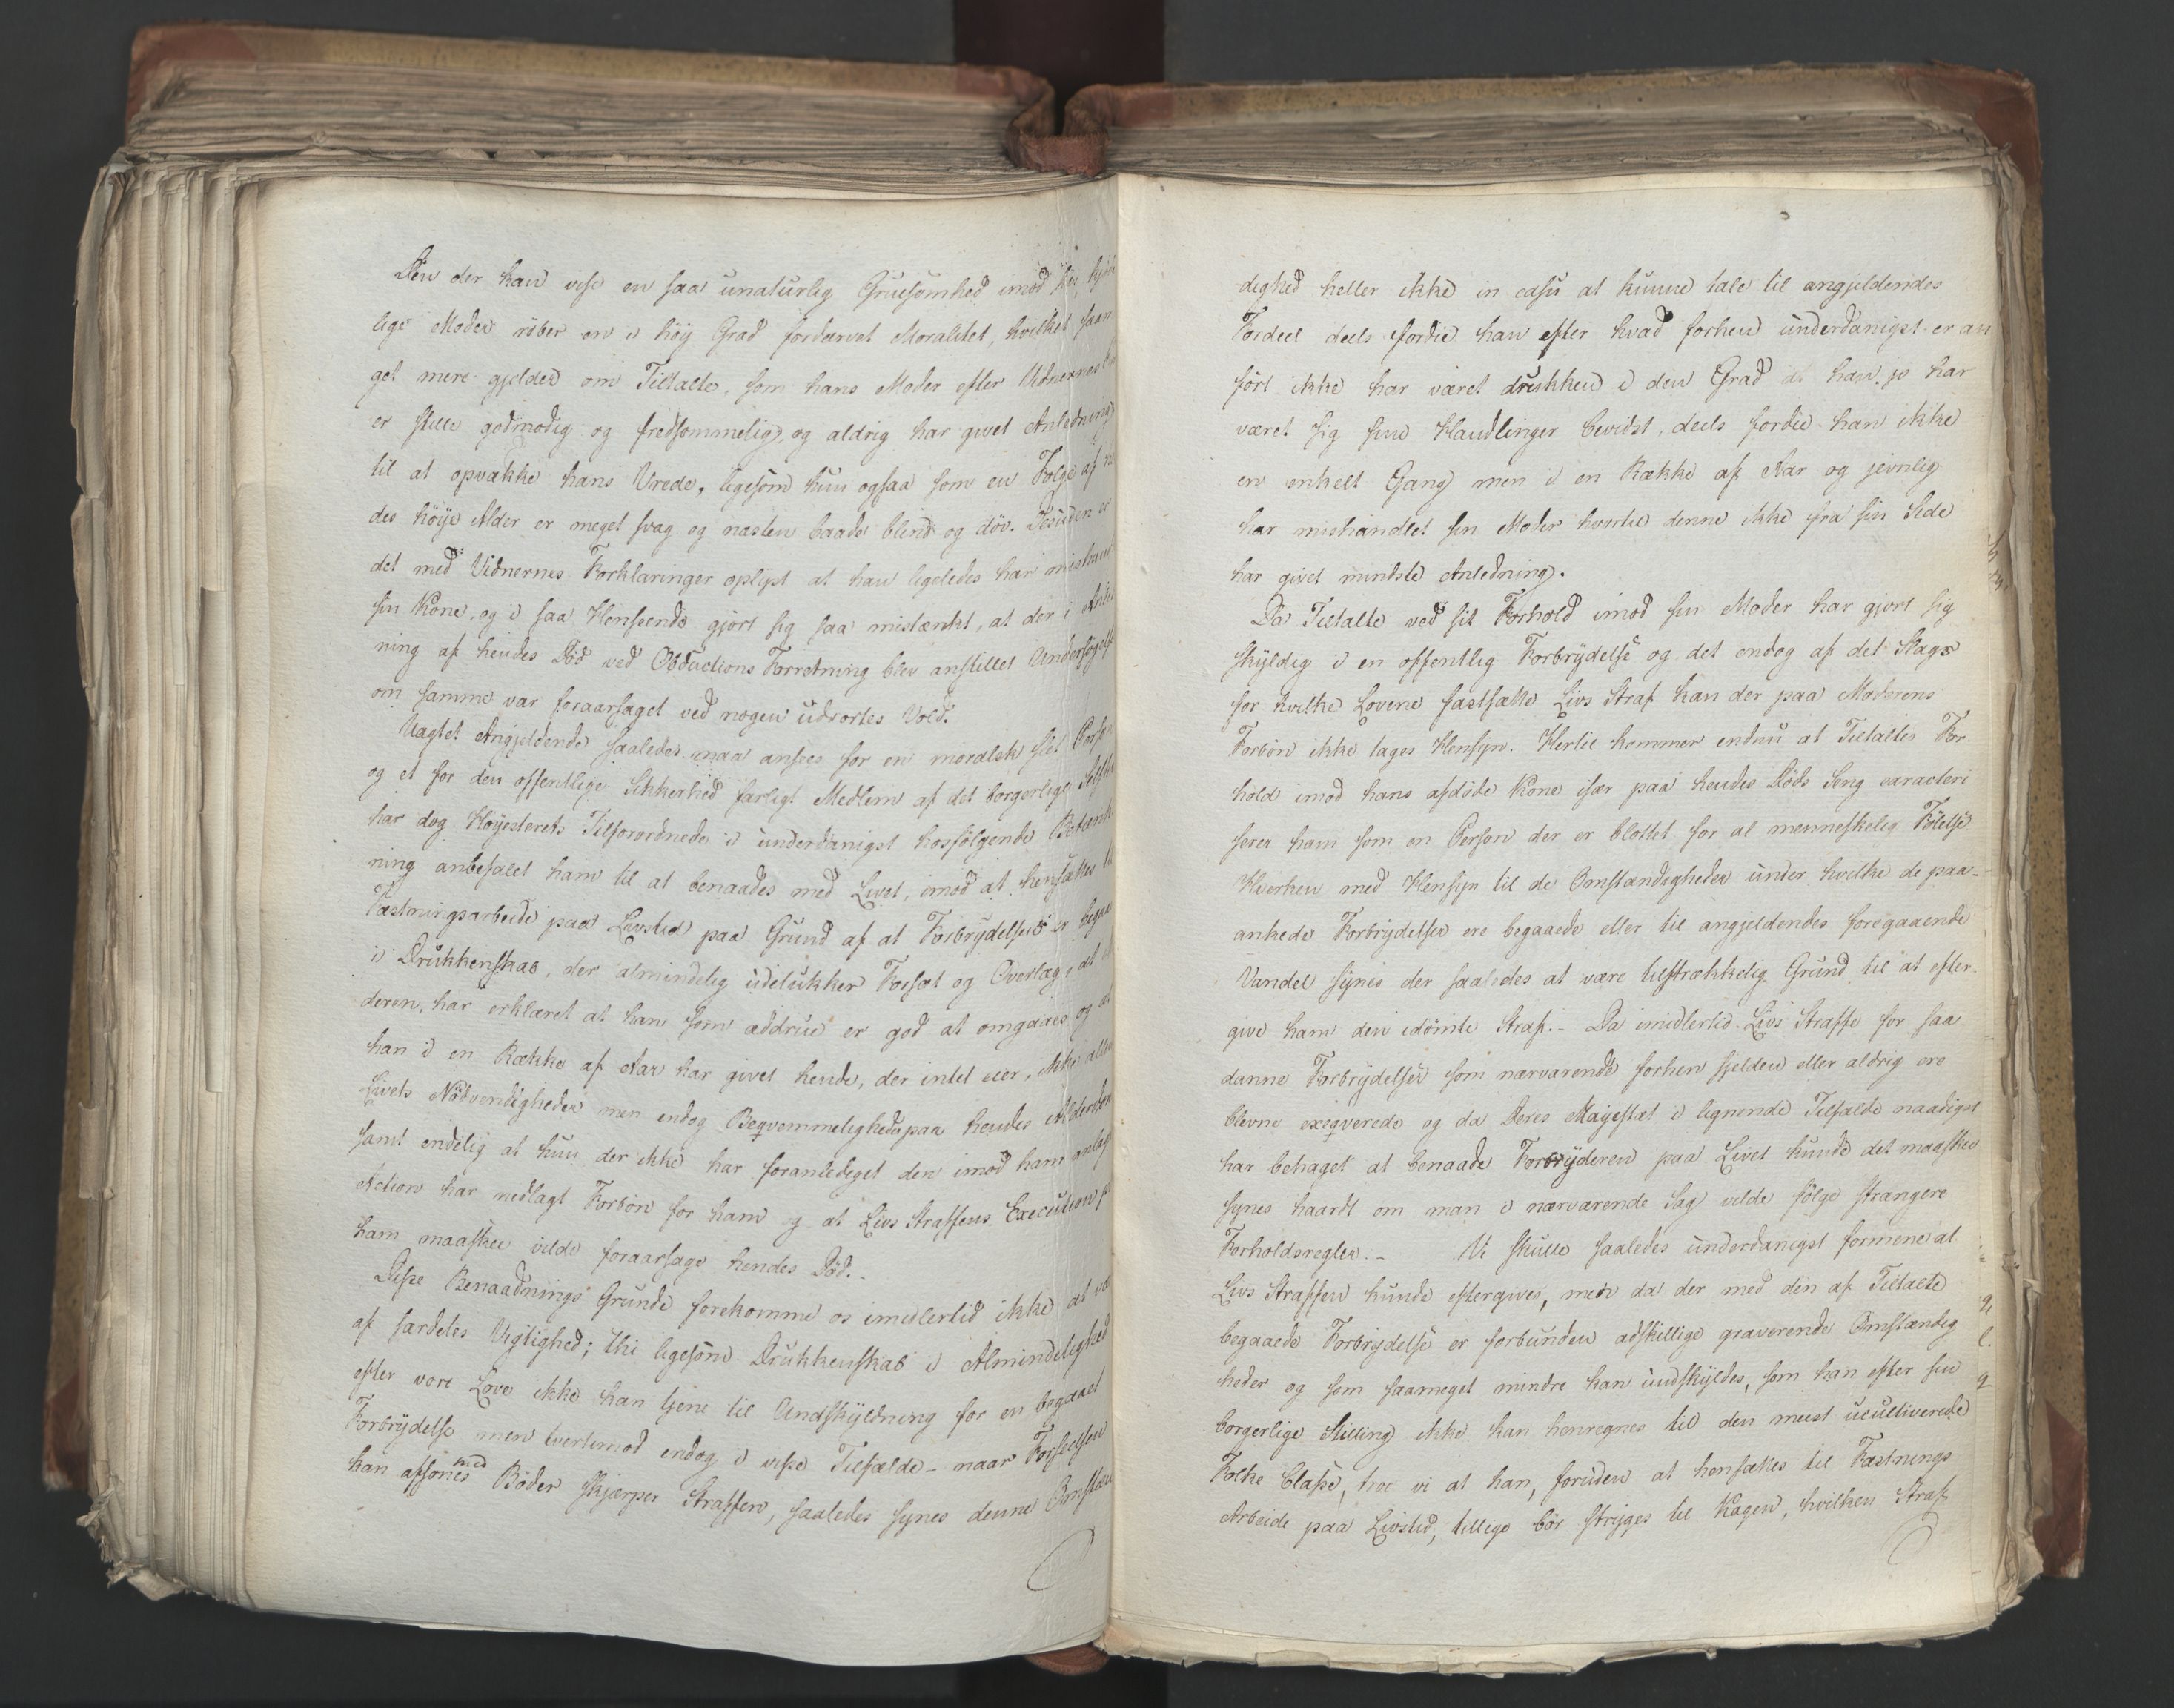 Den der kan vise en saa unaturlig Gruesomhed imod sin kjød
lige Moder røber en i høj Grad fordærvet Moralitet, hvilket saam
get mere gjelder om Tiltalte, som hans Moder efter Vidnernes
er stille godmodig og fredsommelig, og aldrig har givet Anledning
til at opvække hans Vrede, ligesom hun ogsaa som en Følge af
des høije Alder er meget svag og næsten baade blind og døv. Desuden er
det med Vidnernes Forklaringer oplyst at han ligeledes har mishand
sin Kone, og i saa Henseende gjort sig saa mistænkt, at der i Anled
ning af hendes Død ved Obductions Forretning blev anstillet Undersøgelse
om samme var foraarsaget ved nogen udvortes Vold.
Uagtet Angjeldende saaledes maa ansees for en moralsk slet Person
og et for den offentlige Sikkerhed farligt Medlem af det borgerlige Selska
har dog Høyesterets Tilforordnede i underdanigst hosfølgende Betænk
ning anbefalet ham til at benaades med Livet, imod at hensættes til
Fæstningsarbeide paa Livstid paa Grund af at Forbrydelsen er begaa
i Drukkenskab, der almindelig udelukker Forsæt og Overlæg, at
deren, har erklæret at han som ædrue er god at omgaaes og at
han i en Række af Aar har givet hende, der intet eier, ikke allen
Livets Nødvendigheder men endog Beqvemmeligheder paa hendes Alderdom
samt endelig at hun der ikke har foranlediget den imod ham anlag
Action har nedlagt Forbøn for ham og at Livs Straffens Execution p
ham maaskee vilde foraarsage hendes Død.-
Disse Benaadnings Grunde forekomme os imidlertid ikke at væ
af særdeles Vigtighed; thi ligesom Drukkenskab i Almindelighed
efter vore Love ikke kan tjene til Undskyldning for en begaaet
Forbrydelse men tvertimod endog i visse Tilfælde - naar Forseelsen
kan afsones med Bøder skjærper Straffen, saaledes synes denne Omstæn
dighed heller ikke in casu at kunne tale til angjeldendes
Fordeel deels fordie han efter hvad forhen underdanigst er an
ført ikke har været drukken i den Grad at han jo har
været sig sine Handlinger bevidst, deels fordie han ikke
en enkelt Gang men i en Række af Aar og jevnlig
har mishandlet sin Moder hvortil denne ikke fra sin Side
har givet mindste Anledning.
Da Tiltalte ved sit Forhold imod sin Moder har gjort sig
skyldig i en offentlig Forbrydelse og det endog af det Slags
for hvilke Lovene fastsætte Livs Straf kan der paa Moderens
Forbøn ikke tages Hensyn. Hertil kommer endnu at Tiltaltes For-
hold imod hans afdøde Kone især paa hendes Døds Seng caracteri
serer ham som en Person der er blottet for al menneskelig Følelse
Hverken med Hensyn til de Omstændigheder under hvilke de paa-
ankede Forbrydelser ere begaaede eller til angjeldendes foregaaende
Vandel synes der saaledes at være tilstrækkelig Grund til at efter-
give ham den idømte Straf.- Da imidlertid Livs Straffe for saa
danne Forbrydelser som nærværende forhen sjelden eller aldrig ere
blevne exeqverede og da Deres Majestæt i lignende Tilfælde naadigst
har behaget at benaade Forbryderen paa Livet kunde det maaskee
synes haardt om man i nærværende Sag vilde følge strængere
Forholdsregler.- Vi skulle saaledes underdanigst formene at
Livs Straffen kunde eftergives, men da der med den af Tiltalte
begaaede Forbrydelse er forbunden adskillige graverende Omstændig
heder og som saameget mindre kan undskyldes, som han efter sin
borgerlige Stilling ikke kan henregnes til den meest uculliverede
Folke Classe, troe vi at han, foruden at hensættes til Fæstnings
Arbeide paa Livstid, tillige bør stryges til Kagen, hvilken Straf